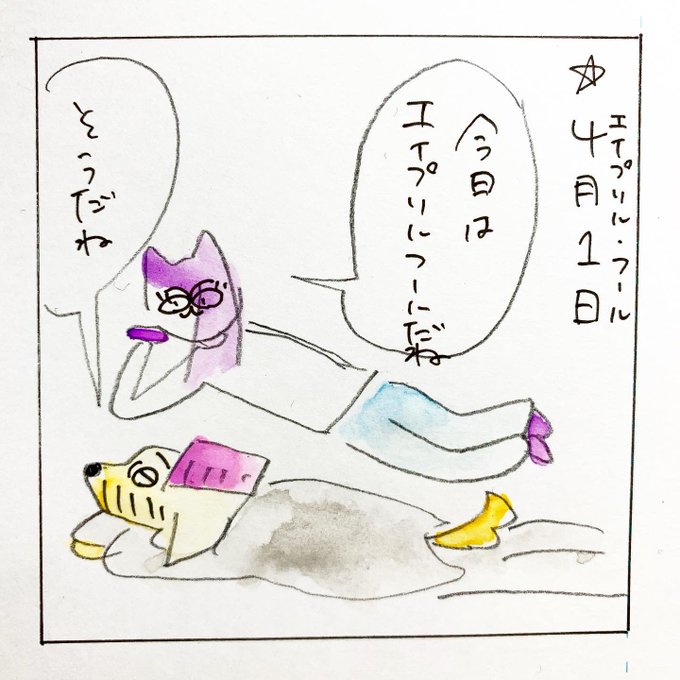 ☆
エイプリル・フール
4月1日
今日は
エイプリルフールだね
そうだね